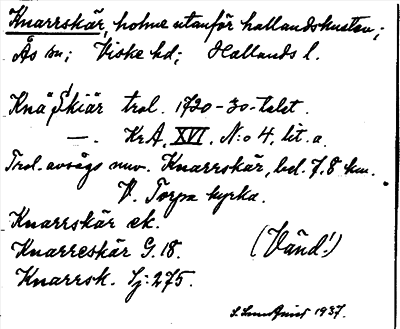 Knarrskär, holme utanför hallandskusten;
Ås sn; Viske hd; Hallands l.
Knä Skiär trol. 1720-30-talet.
—. KrA, XVI, N:o 4, lit. a.
Trol. avsågs nuv. Knarrskär, bel. 7,8 km.
V. Torpa kyrka.
Knarrskär ek.
Knarreskär G. 18. (Vänd!)
Knarrsk. Sj: 275.
1937.